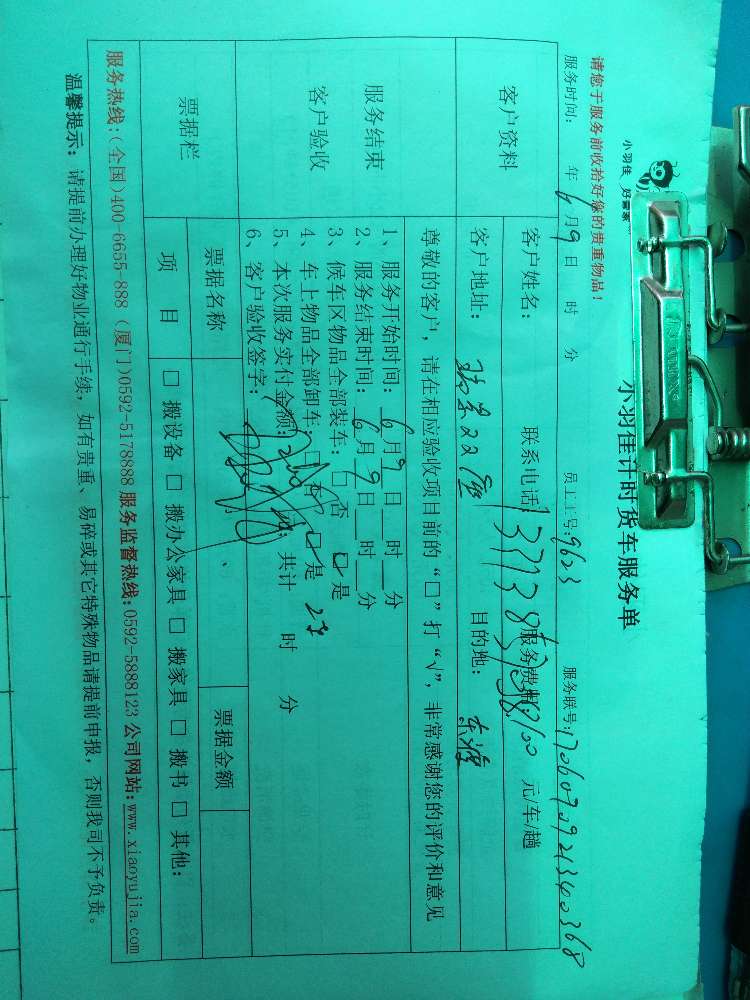 小羽佳 好管家
小羽佳计时货车服务单
请您于服务前收拾好您的贵重物品！
服务时间： 年6月9日 时 分 员工工号：9623 服务联号：1706090921340368
客户资料
客户姓名： 联系电话： 服务费用： 元/车/趟
客户地址： 目的地： 东渡
服务结束
客户验收
尊敬的客户，请在相应验收项目前的“□”打“√”，非常感谢您的评价和意见
1、服务开始时间：6月9日 时 分
2、服务结束时间：6月9日 时 分
3、候车区物品全部装车：□否 □是
4、车上物品全部卸车：□否 □是
5、本次服务实付金额： 共计 时 分
6、客户验收签字：
票据栏
票据名称 票据金额
项 目 □ 搬设备 □ 搬办公家具 □ 搬家具 □ 搬书 □ 其他：
服务热线：(全国)400-6655-888 (厦门)0592-5178888 服务监督热线：0592-5888123 公司网站：www.xiaoyujia.com
温馨提示：请提前办理好物业通行手续，如有贵重、易碎或其它特殊物品请提前申报，否则我司不予负责。